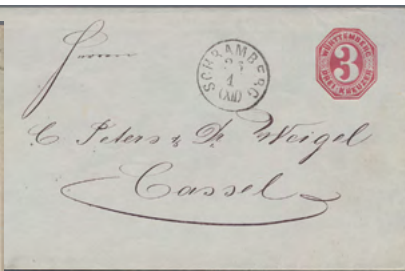 Herren
SCHRAMBERG
1
(XII)
WÜRTTEMBERG
3
DREI-KREUZER
C. Peters & Dr. Weigel
Cassel